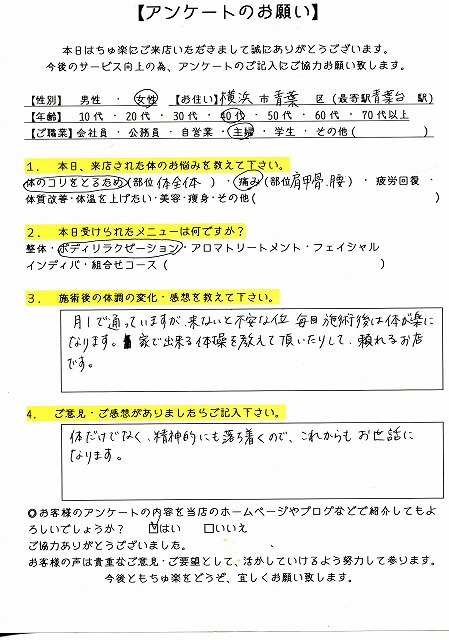 【アンケートのお願い】
本日はちゅ楽にご来店いただきまして誠にありがとうございます。
今後のサービス向上の為、アンケートのご記入にご協力お願い致します。
【性別】 男性 ・ 女性 【お住い】横浜 市 青葉 区（最寄駅 青葉台 駅）
【年齢】 10代 ・ 20代 ・ 30代 ・ 40代 ・ 50代 ・ 60代 ・ 70代以上
【ご職業】会社員 ・ 公務員 ・ 自営業 ・ 主婦 ・ 学生 ・ その他（ ）
1． 本日、来店された体のお悩みを教えて下さい。
体のコリをとるため（部位 体全体 ）・ 痛み（部位 肩甲骨、腰）・ 疲労回復 ・
体質改善・体温を上げたい・美容・痩身・その他（ ）
2． 本日受けられたメニューは何ですか？
整体・ボディリラクゼーション・アロマトリートメント・フェイシャル
インディバ・組合せコース（ ）
3． 施術後の体調の変化・感想を教えて下さい。
月1で通っていますが、来ないと不安な位 毎日施術後は体が楽に
なります。 家で出来る体操を教えて頂いたりして、頼れるお店
です。
4． ご意見・ご感想がありましたらご記入下さい。
体だけでなく、精神的にも落ち着くので、これからも お世話に
なります。
◎お客様のアンケートの内容を当店のホームページやブログなどで紹介してもよ
ろしいでしょうか？ ☑はい □いいえ
ご協力ありがとうございました。
お客様の声は貴重なご意見・ご要望として、活かしていけるよう努力して参ります。
今後ともちゅ楽をどうぞ、宜しくお願い致します。